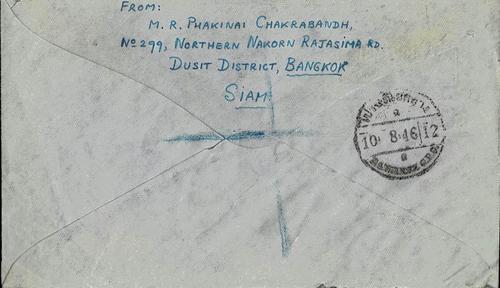 FROM:
M. R. PHAKINAI CHAKRABANDH,
Nº 299, NORTHERN NAKORN RAJASIMA RD.
DUSIT DISTRICT, BANGKOK
SIAM.
10. 8.46 12
BANGKOK G.P.O.